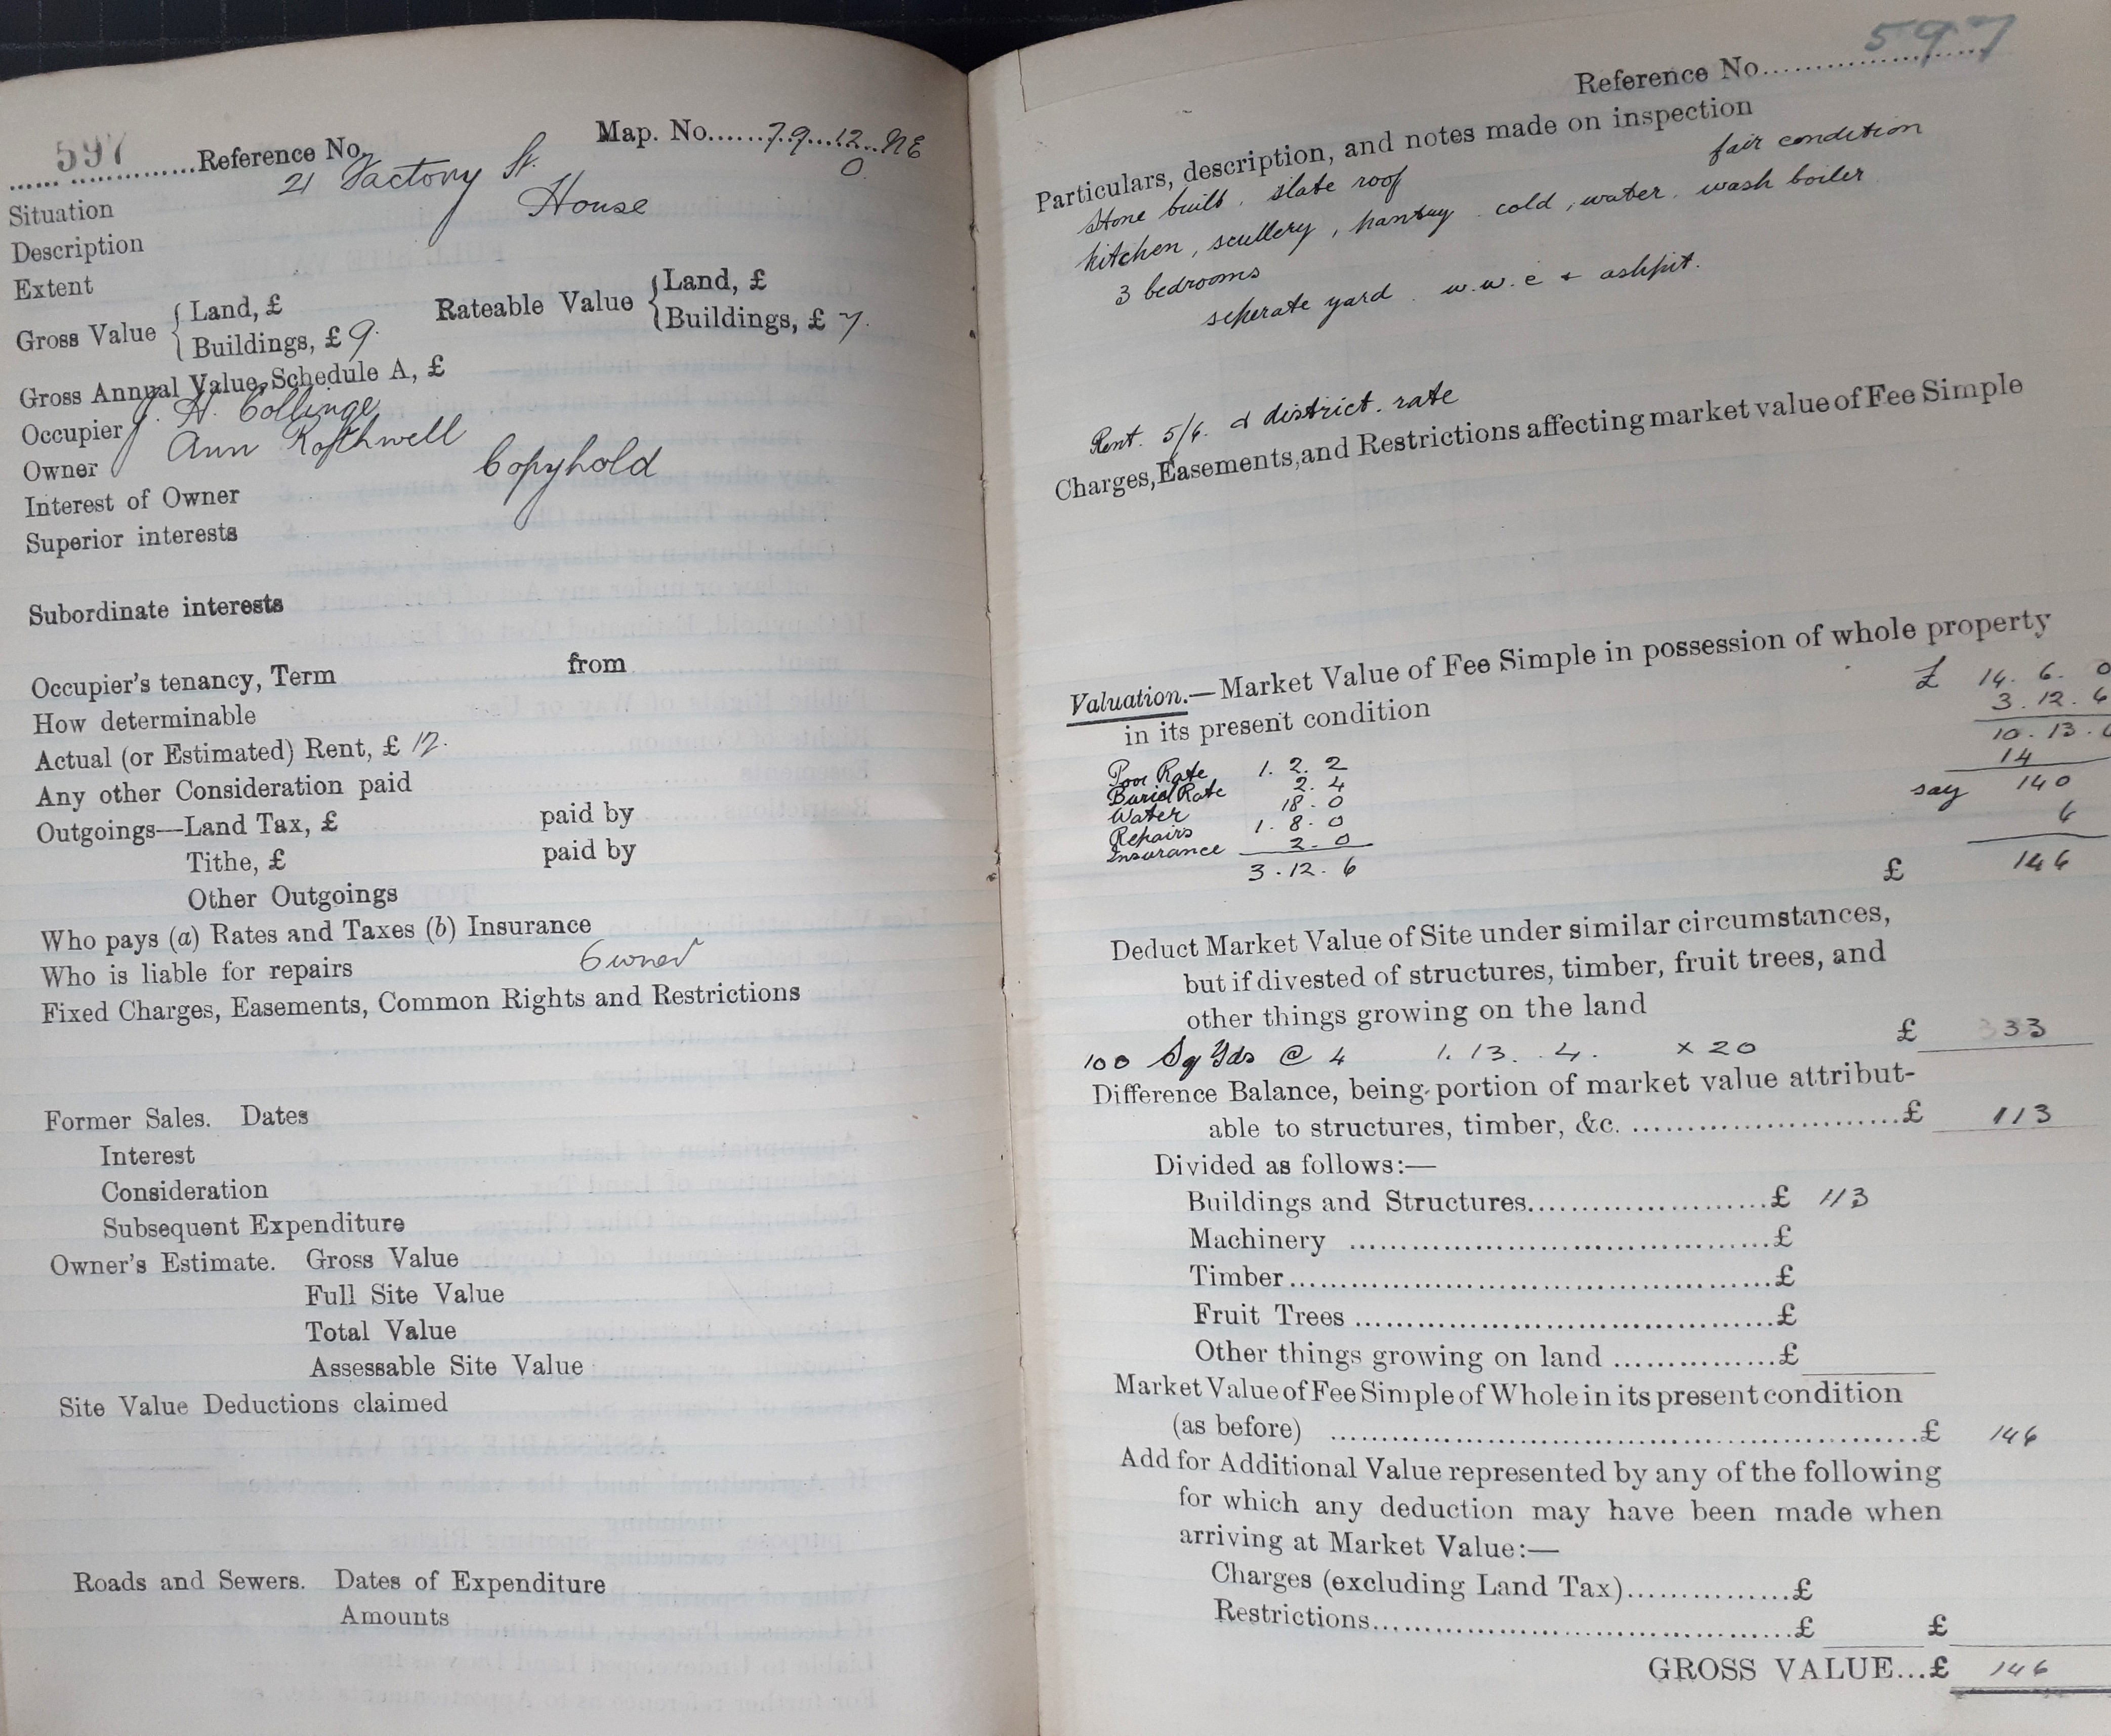 597 Reference No. Map. No. 79.12.NE
0
Situation 21 Factory St.
Description House
Extent
Gross Value { Land, £ Rateable Value { Land, £
Buildings, £ 9. Buildings, £ 7.
Gross Annual Value, Schedule A, £
Occupier J. H. Collinge
Owner Ann Rothwell
Interest of Owner Copyhold
Superior interests
Subordinate interests
Occupier's tenancy, Term from
How determinable
Actual (or Estimated) Rent, £ 12.
Any other Consideration paid
Outgoings—Land Tax, £ paid by
Tithe, £ paid by
Other Outgoings
Who pays (a) Rates and Taxes (b) Insurance
Who is liable for repairs Owner
Fixed Charges, Easements, Common Rights and Restrictions
Former Sales. Dates
Interest
Consideration
Subsequent Expenditure
Owner's Estimate. Gross Value
Full Site Value
Total Value
Assessable Site Value
Site Value Deductions claimed
Roads and Sewers. Dates of Expenditure
Amounts
Reference No. 597
Particulars, description, and notes made on inspection
Stone built, slate roof fair condition
kitchen, scullery, pantry. cold, water. wash boiler
3 bedrooms
seperate yard. w.w.c + ashpit.
Rent. 5/6. & district. rate
Charges, Easements, and Restrictions affecting market value of Fee Simple
Valuation.—Market Value of Fee Simple in possession of whole property
in its present condition
£ 14. 6. 0
3. 12. 6
10. 13.
14
say 140
6
£ 146
Poor Rate 1. 2. 2
Burial Rate 2. 4
Water 18. 0
Repairs 1. 8. 0
Insurance 2. 0
3. 12. 6
Deduct Market Value of Site under similar circumstances,
but if divested of structures, timber, fruit trees, and
other things growing on the land £ 33
100 Sq Yds @ 4 1. 13. 4. x 20
Difference Balance, being portion of market value attribut-
able to structures, timber, &c. £ 113
Divided as follows:—
Buildings and Structures £ 113
Machinery £
Timber £
Fruit Trees £
Other things growing on land £
Market Value of Fee Simple of Whole in its present condition
(as before) £ 146
Add for Additional Value represented by any of the following
for which any deduction may have been made when
arriving at Market Value:—
Charges (excluding Land Tax) £
Restrictions £ £
GROSS VALUE...£ 146